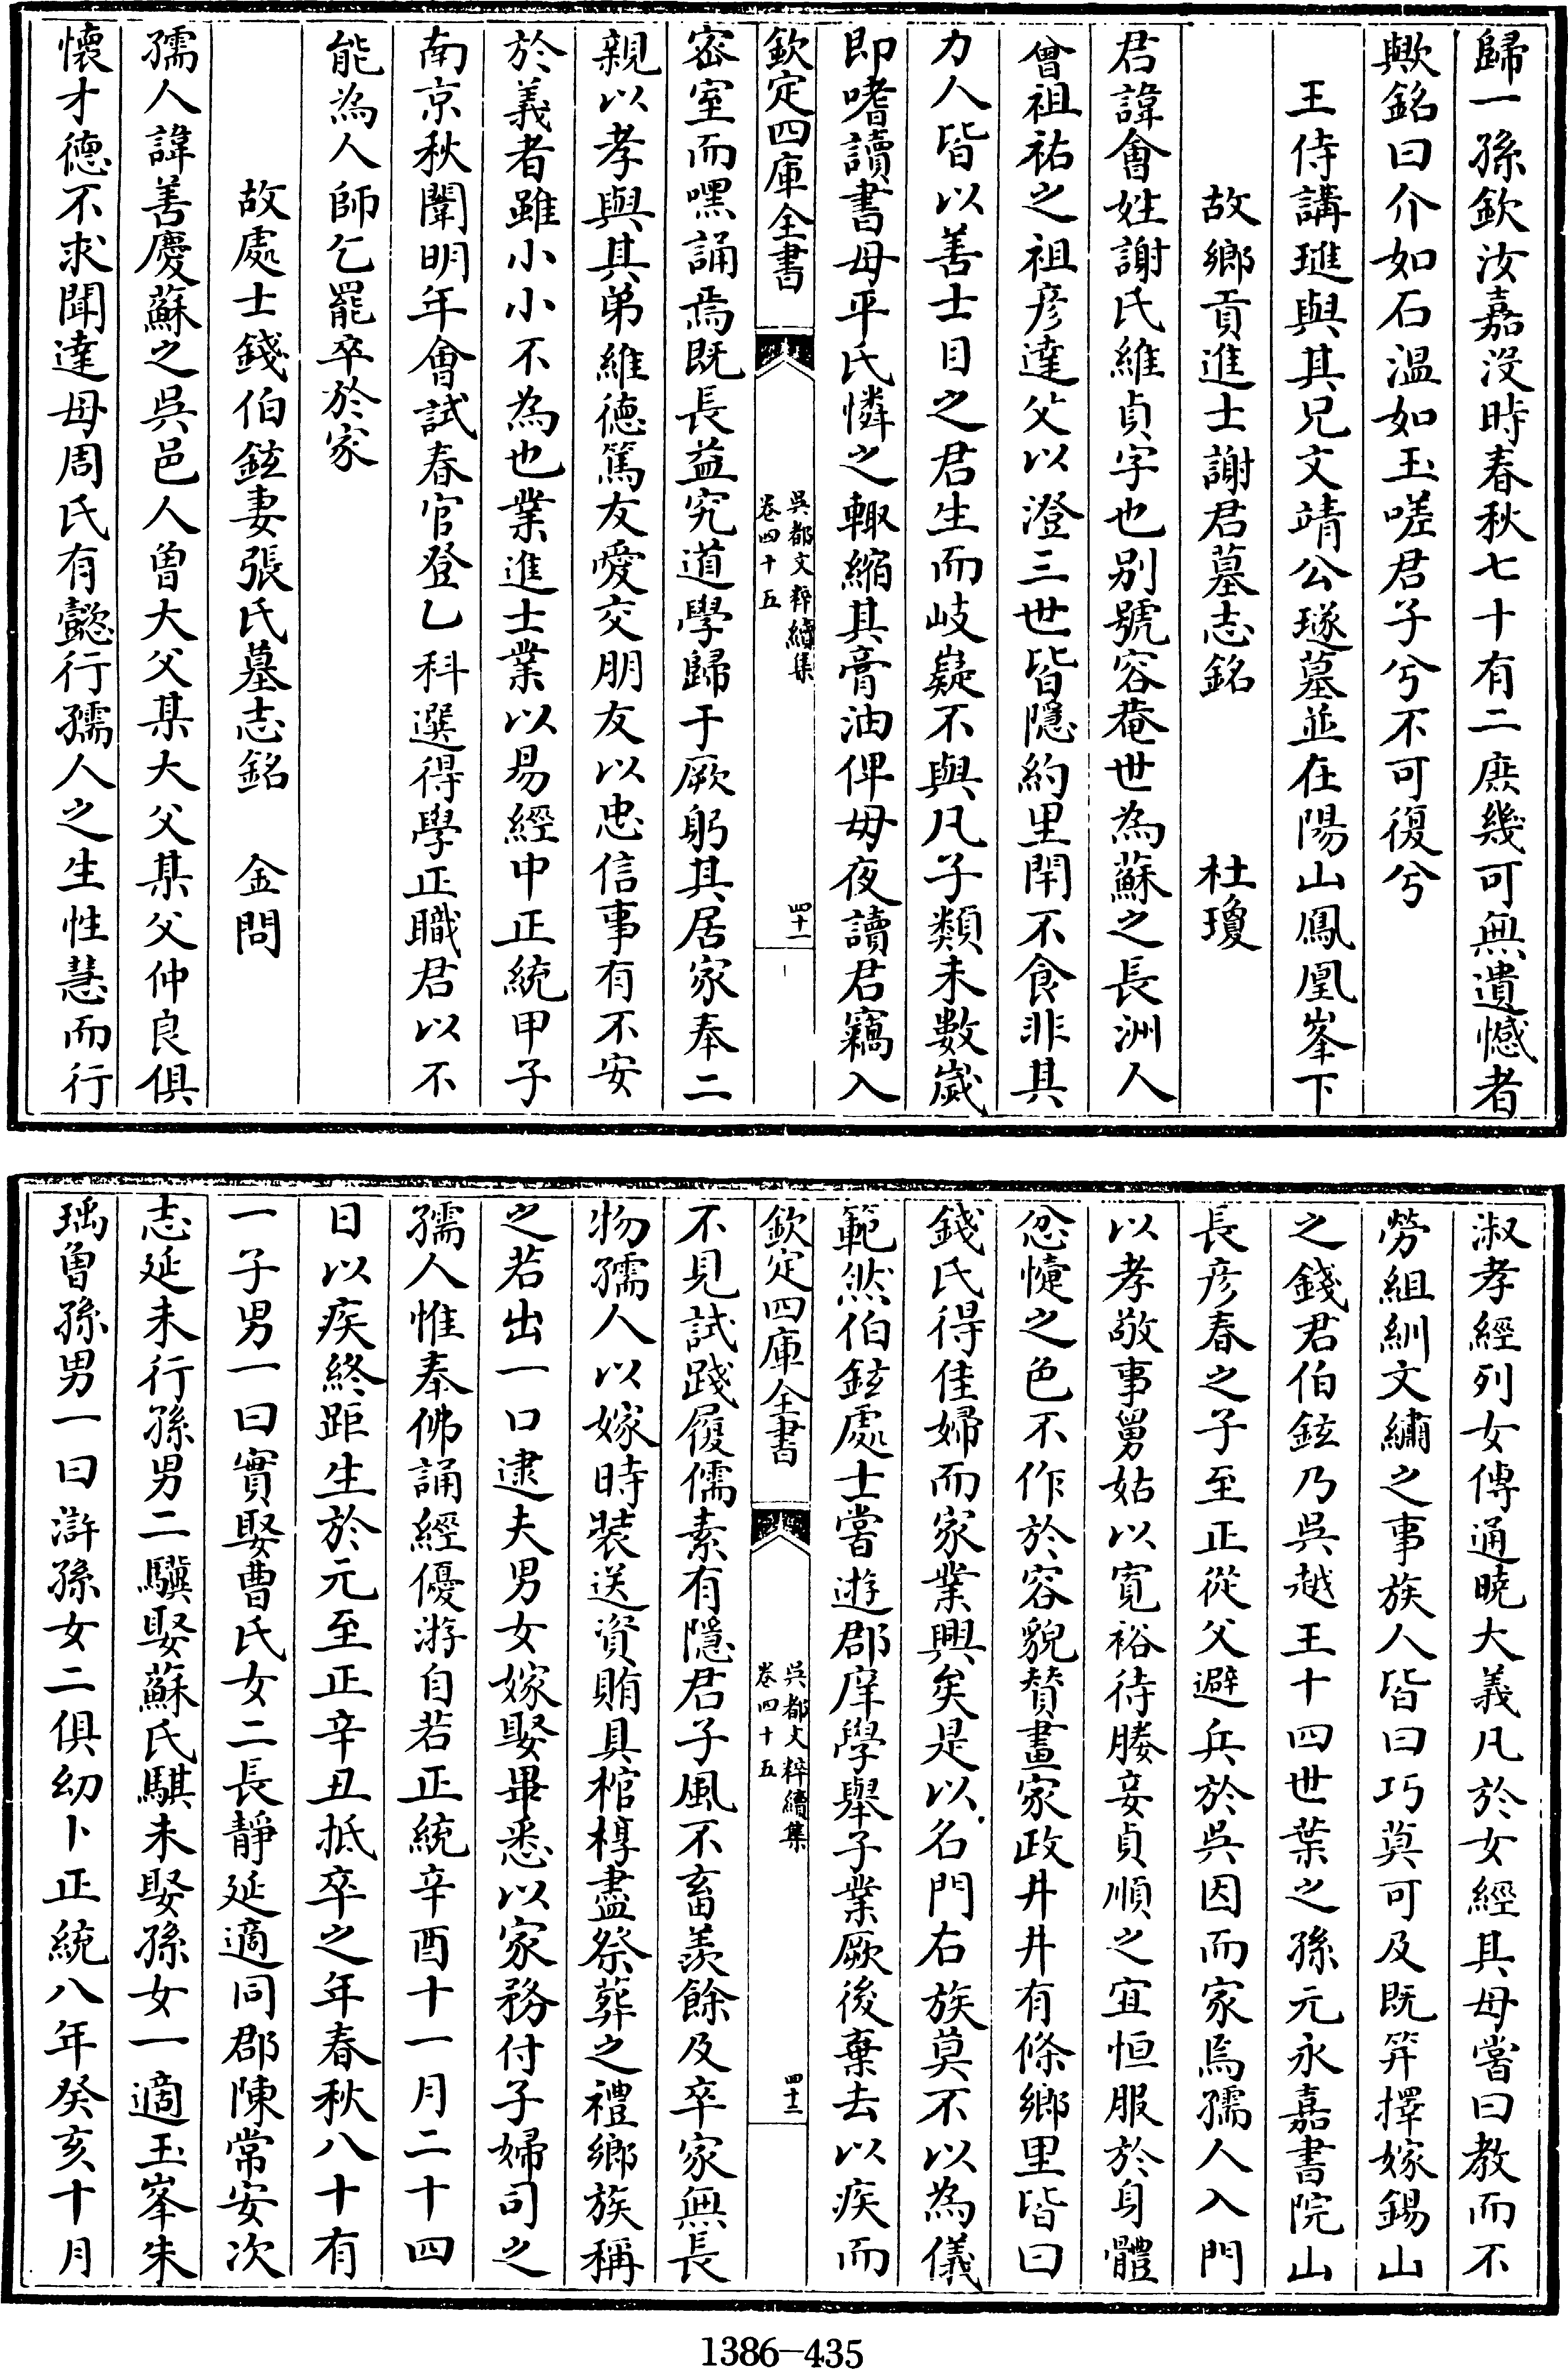 歸一孫欽汝嘉没時春秋七十有二庶幾可無遺憾者
歟銘曰介如石溫如玉嗟君子兮不可復兮
王侍講璡與其兄文靖公璲墓並在陽山鳳凰峯下
故鄉貢進士謝君墓志銘　杜瓊
君諱會姓謝氏維貞字也别號容菴世為蘇之長洲人
曾祖祐之祖彦達父以澄三世皆隱約里閈不食非其
力人皆以善士目之君生而岐嶷不與凡子類未數歲
即嗜讀書母平氏憐之輙縮其膏油俾毋夜讀君竊入
欽定四庫全書
吳都文粹續集
卷四十五
四十一
密室而嘿誦焉既長益究道學歸于厥躬其居家奉二
親以孝與其弟維德篤友愛交朋友以忠信事有不安
於義者雖小小不為也業進士業以易經中正統甲子
南京秋闈明年會試春官登乙科選得學正職君以不
能為人師乞罷卒於家
故處士錢伯鉉妻張氏墓志銘　金問
孺人諱善慶蘇之吳邑人曾大父某大父某父仲良俱
懷才德不求聞達母周氏有懿行孺人之生性慧而行
淑孝經列女傳通曉大義凡於女經其母嘗曰教而不
勞組紃文繡之事族人皆曰巧莫可及既笄擇嫁錫山
之錢君伯鉉乃吳越王十四世葉之孫元永嘉書院山
長彦春之子至正從父避兵於吳因而家焉孺人入門
以孝敬事舅姑以寛裕待媵妾貞順之宜恒服於身體
忿懥之色不作於容貌賛畫家政井井有條鄉里皆曰
錢氏得佳婦而家業興矣是以名門右族莫不以為儀
範然伯鉉處士嘗遊郡庠學舉子業厥後棄去以疾而
欽定四庫全書
吳都文粹續集
卷四十五
四十二
不見試踐履儒素有隱君子風不畜羨餘及卒家無長
物孺人以嫁時裝送資賄具棺椁盡祭葬之禮鄉族稱
之若出一口逮夫男女嫁娶畢悉以家務付子婦司之
孺人惟奉佛誦經優游自若正統辛酉十一月二十四
日以疾終距生於元至正辛丑抵卒之年春秋八十有
一子男一曰實娶曹氏女二長靜延適同郡陳常安次
志延未行孫男二驥娶蘇氏騏未娶孫女一適玉峯朱
瑀曾孫男一曰滸孫女二俱幼卜正統八年癸亥十月
1386-435